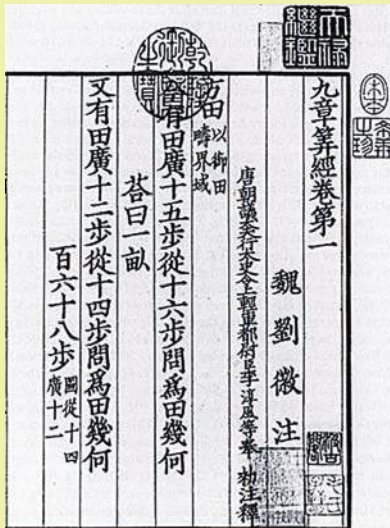 九章筭經卷第一
魏劉徽注
唐朝議大夫行太史令上輕車都尉臣李淳風等奉勑注釋
方田以御田疇界域
今有田廣十五步從十六步問爲田幾何
荅曰一畝
又有田廣十二步從十四步問爲田幾何
百六十八步圖從十四廣十二
天祿繼鑑
宋本